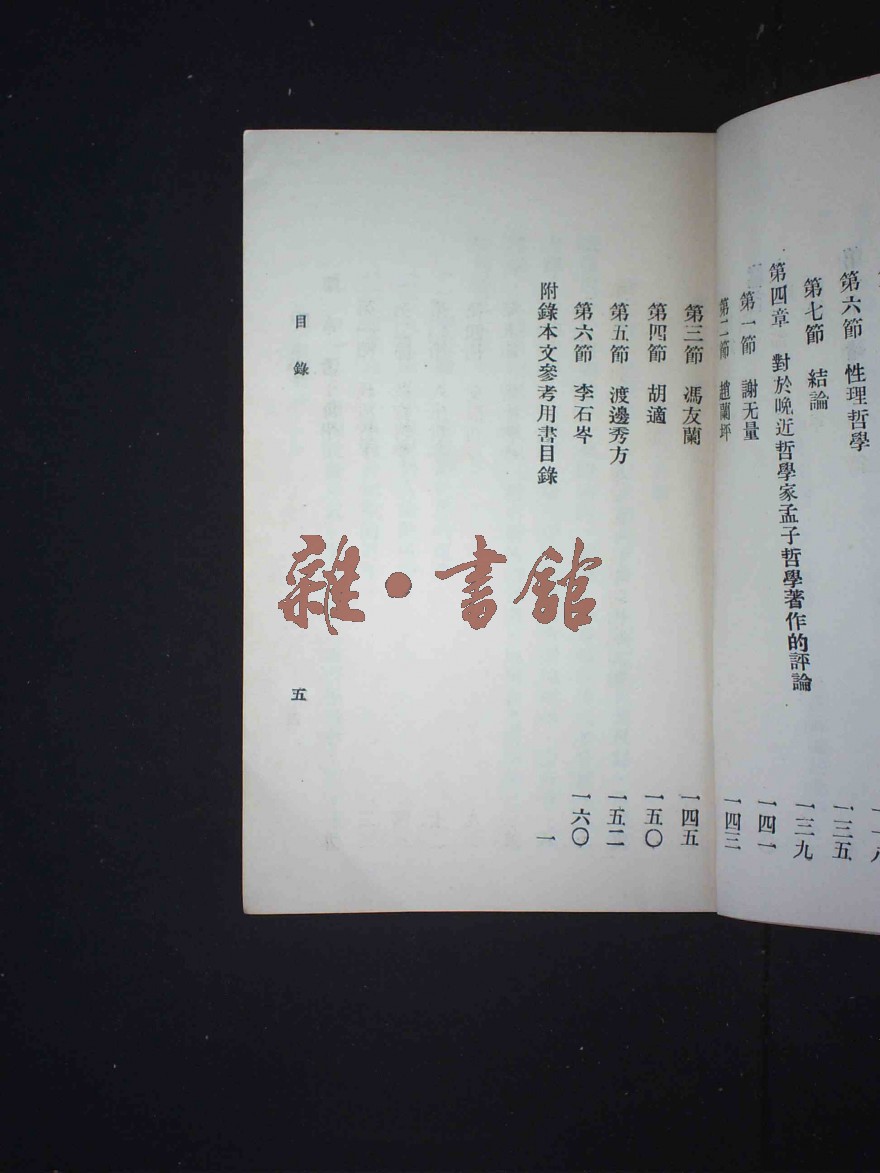 第六節 性理哲學 一三五
第七節 結論 一三九
第四章 對於晚近哲學家孟子哲學著作的評論
第一節 謝无量 一四一
第二節 趙蘭坪 一四三
第三節 馮友蘭 一四五
第四節 胡適 一五〇
第五節 渡邊秀方 一五二
第六節 李石岑 一六〇
附錄本文參考用書目錄 一
目錄 五
雜·書館